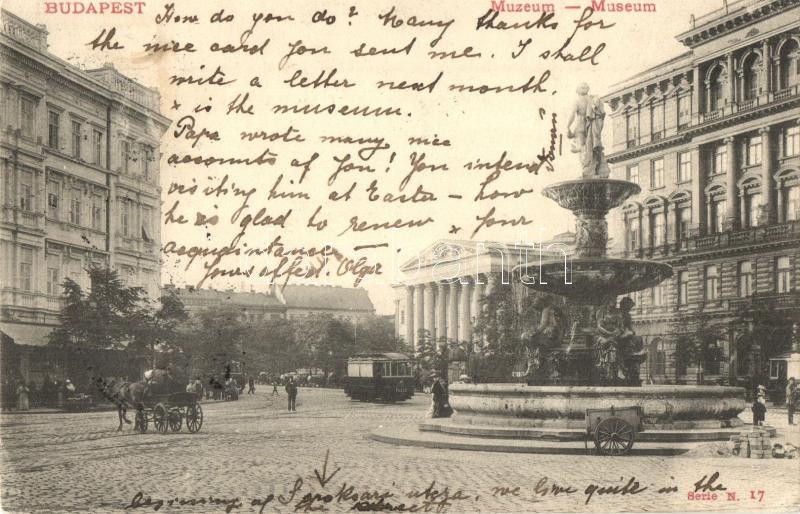 BUDAPEST
Muzeum — Museum
How do you do? Many thanks for
the nice card you sent me. I shall
write a letter next month.
x is the museum.
Papa wrote many nice
accounts of you! You intend
visiting him at Easter — how
he is glad to renew your
acquaintance —
Yours affect. Olga
beginning of Soroksári utcza, we live quite in the
the
Serie N. 17